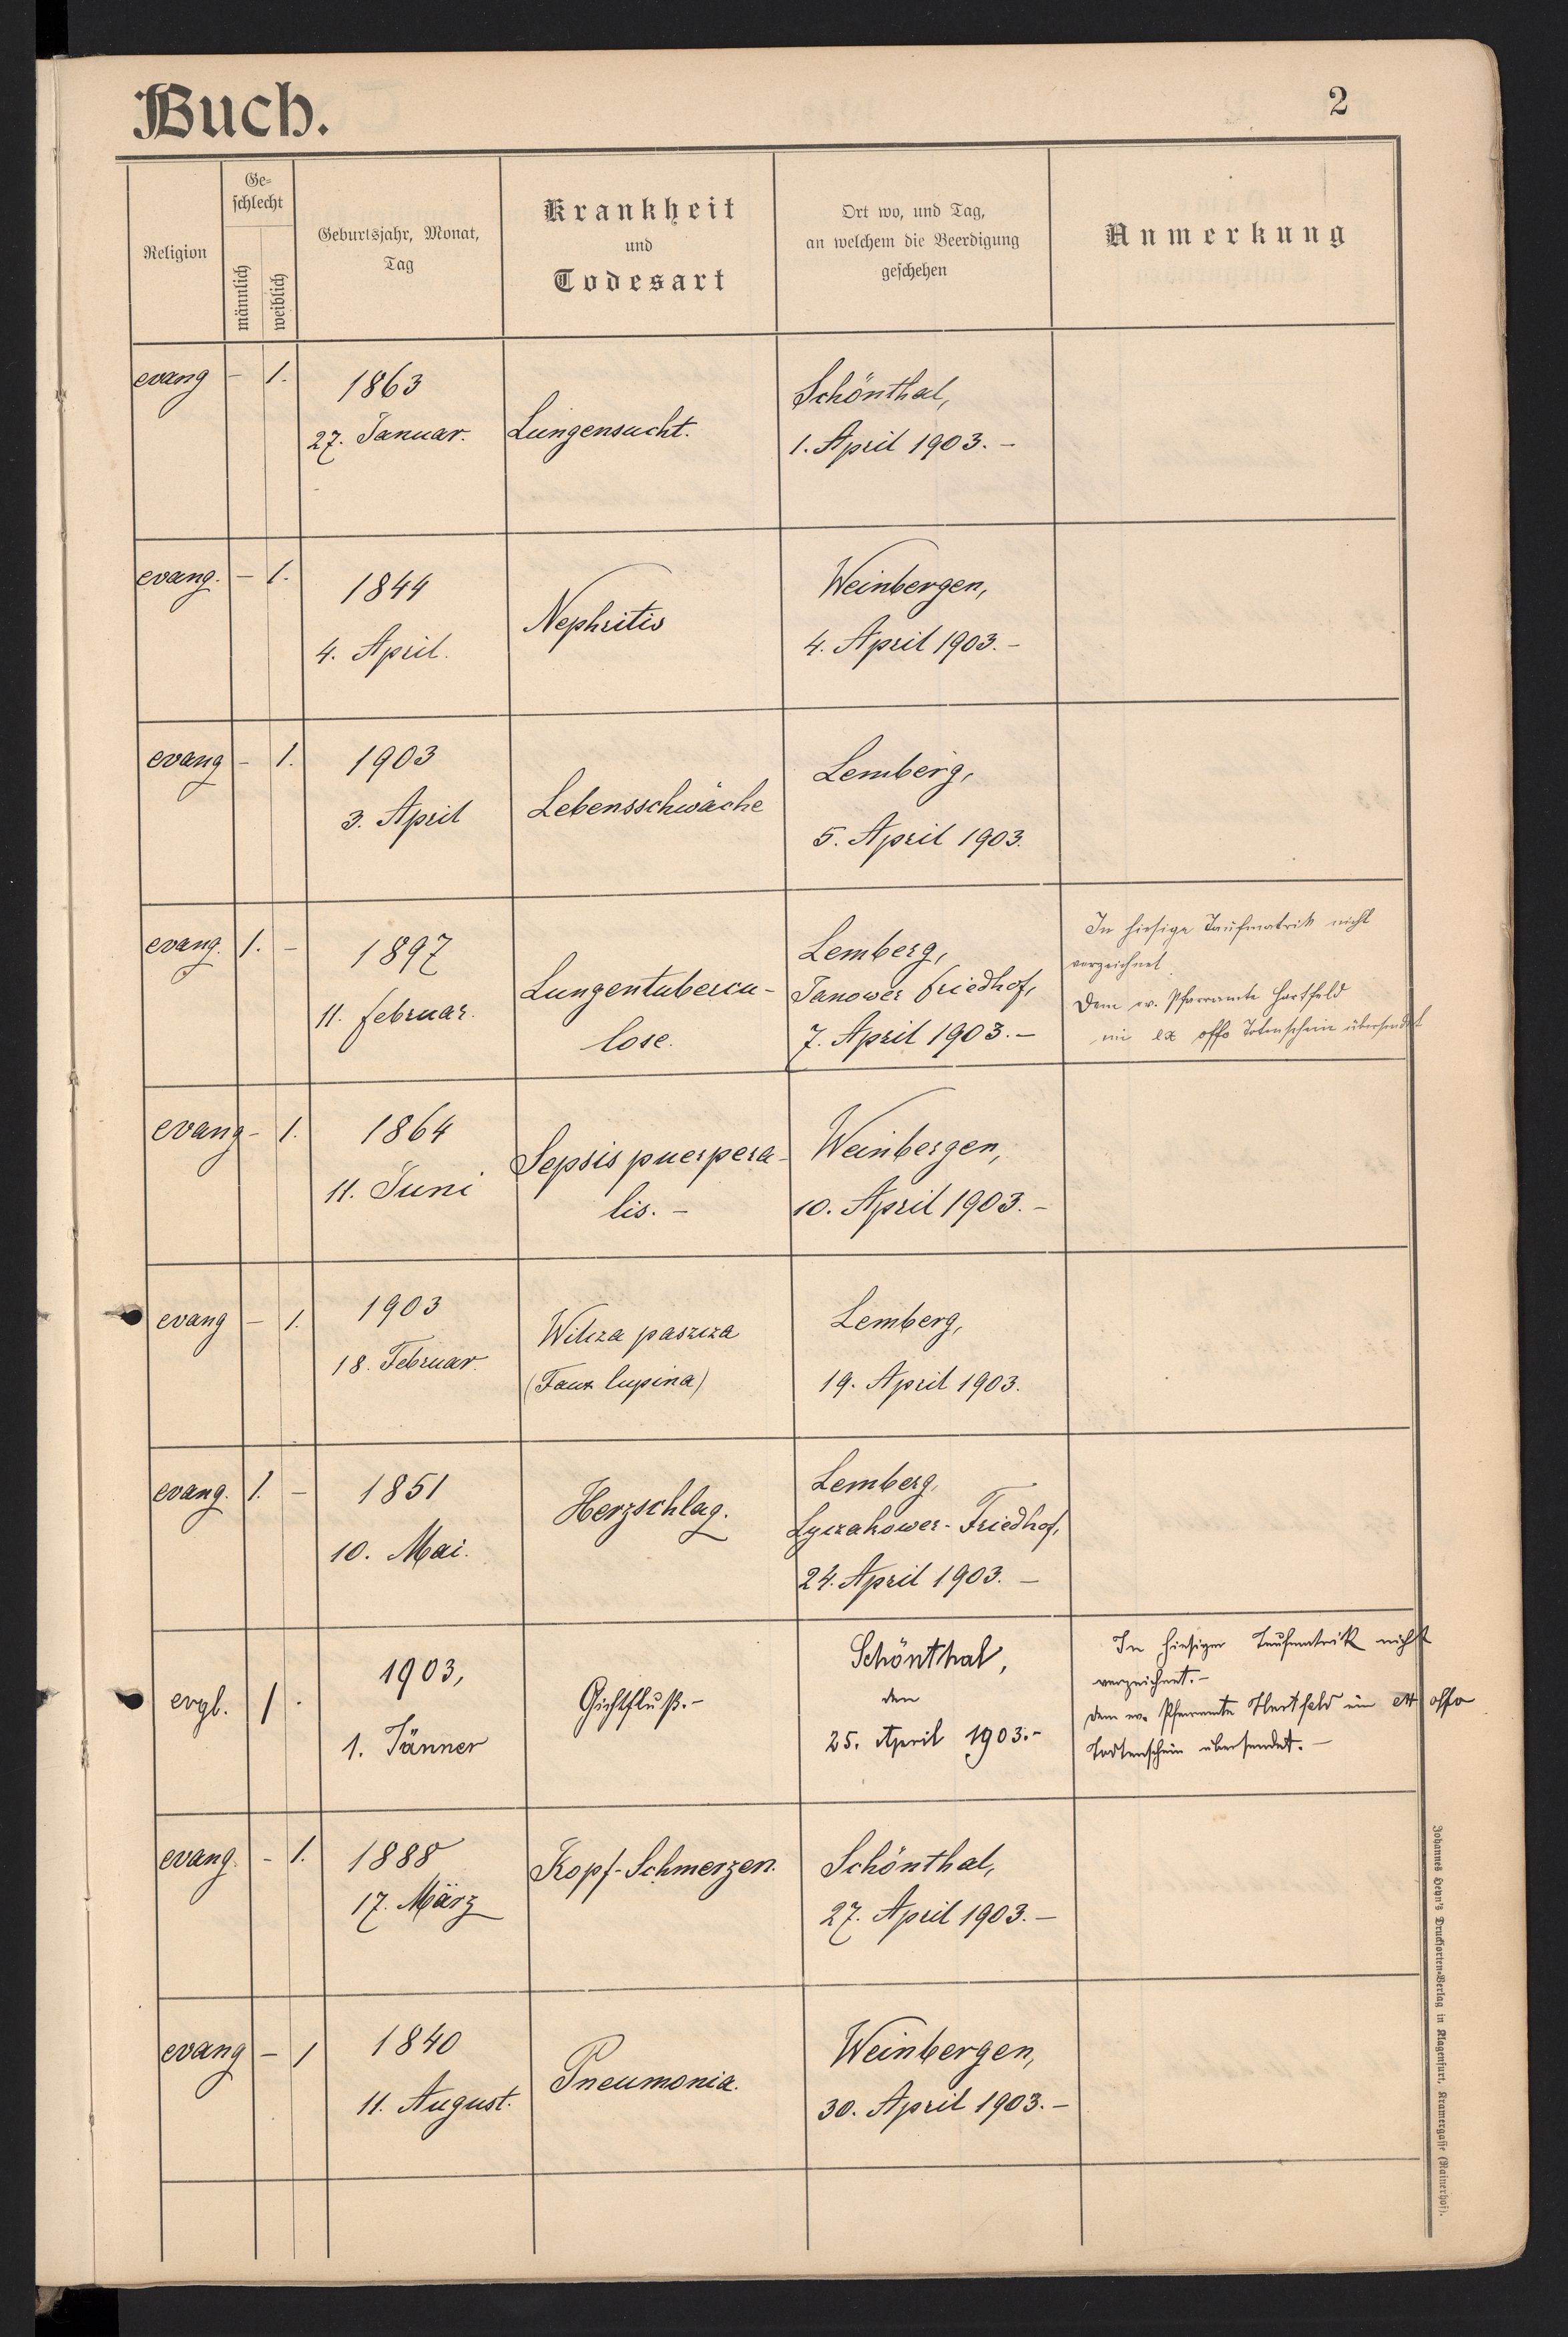 Buch.
2
Religion
Ge-
schlecht
männlich
weiblich
Geburtsjahr, Monat,
Tag
Krankheit
und
Todesart
Ort wo, und Tag,
an welchem die Beerdigung
geschehen
Anmerkung
evang - 1.
1863
27. Januar.
Lungensucht.
Schönthal,
1. April 1903. -
evang. - 1.
1844
4. April.
Nephritis
Weinbergen,
4. April 1903. -
evang - 1.
1903
3. April
Lebensschwäche
Lemberg,
5. April 1903.
evang. 1. -
1897
11. februar.
Lungentubercu-
lose.
Lemberg,
Janower friedhof,
7. April 1903. -
In hiesige Taufmatrik nicht
verzeichnet.
Dem ev. Pfarramte Hartfeld
ein ex offo Totenschein übersendet
evang - 1.
1864
11. Juni
Sepsis puerpera-
lis. -
Weinbergen,
10. April 1903. -
evang - 1.
1903
18. Februar.
Wilcza paszcza
(Faux lupina)
Lemberg,
19. April 1903.
evang. 1. -
1851
10. Mai.
Herzschlag.
Lemberg,
Lyczakower-Friedhof,
24. April 1903. -
evgl. 1 .
1903,
1. Jänner
Gichtfluß. -
Schönthal,
den
25. April 1903. -
In hiesiger Taufmatrik nicht
verzeichnet. -
dem ev. Pfarramte Hartfeld ein ex offo
Todtenschein übersendet. -
evang. - 1.
1888
17. März
Kopf-Schmerzen.
Schönthal,
27. April 1903. -
evang - 1
1840
11. August.
Pneumonia.
Weinbergen,
30. April 1903. -
Johannes Heyn's Drucksorten-Verlag in Klagenfurt, Kramergasse (Rainerhof).